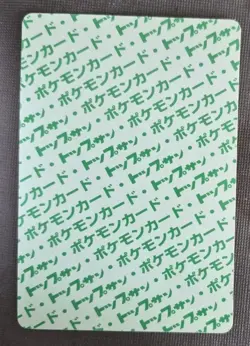 トップサン・ポケモンカード・トップサン
ポケモンカード・トップサン・ポケモンカード
トップサン・ポケモンカード・トップサン
ポケモンカード・トップサン・ポケモンカード
トップサン・ポケモンカード・トップサン
ポケモンカード・トップサン・ポケモンカード
トップサン・ポケモンカード・トップサン
ポケモンカード・トップサン・ポケモンカード
トップサン・ポケモンカード・トップサン
ポケモンカード・トップサン